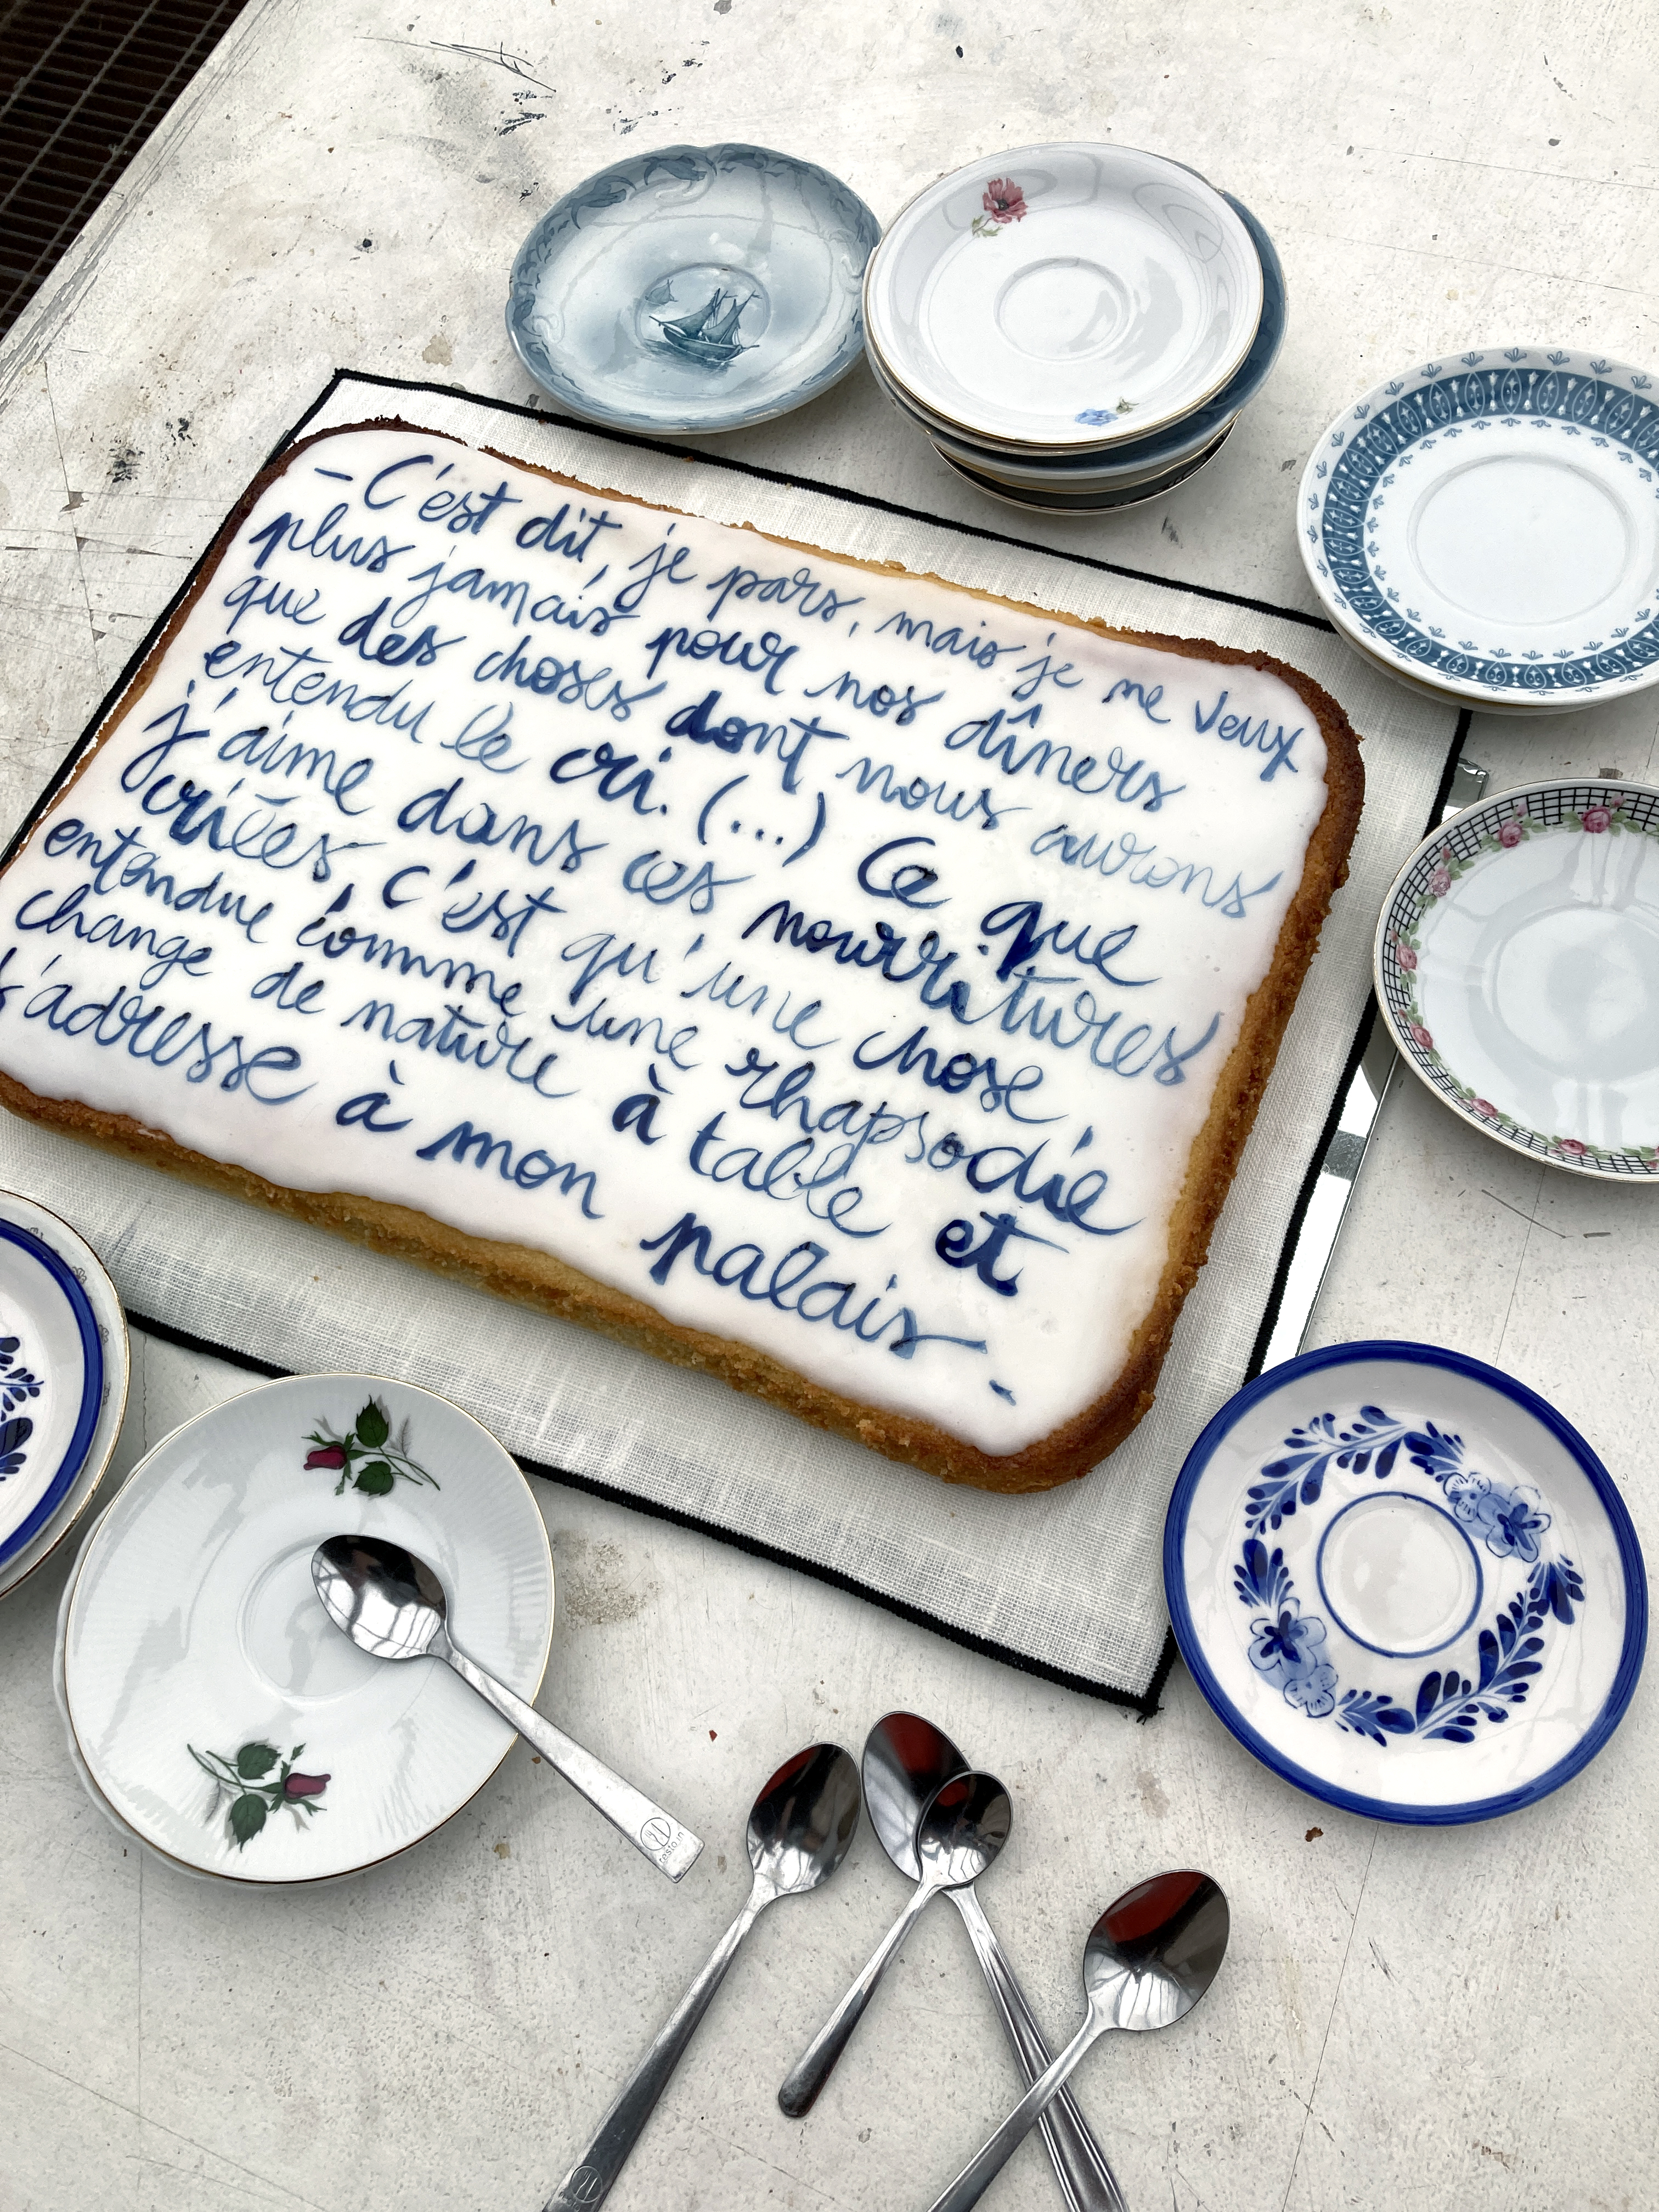 – C'est dit, je pars, mais je ne veux
plus jamais pour nos dîners
que des choses dont nous aurons
entendu le cri. (...) Ce que
j'aime dans ces nourritures
criées, c'est qu'une chose
entendue comme une rhapsodie
change de nature à table et
s'adresse à mon palais –
resto.in